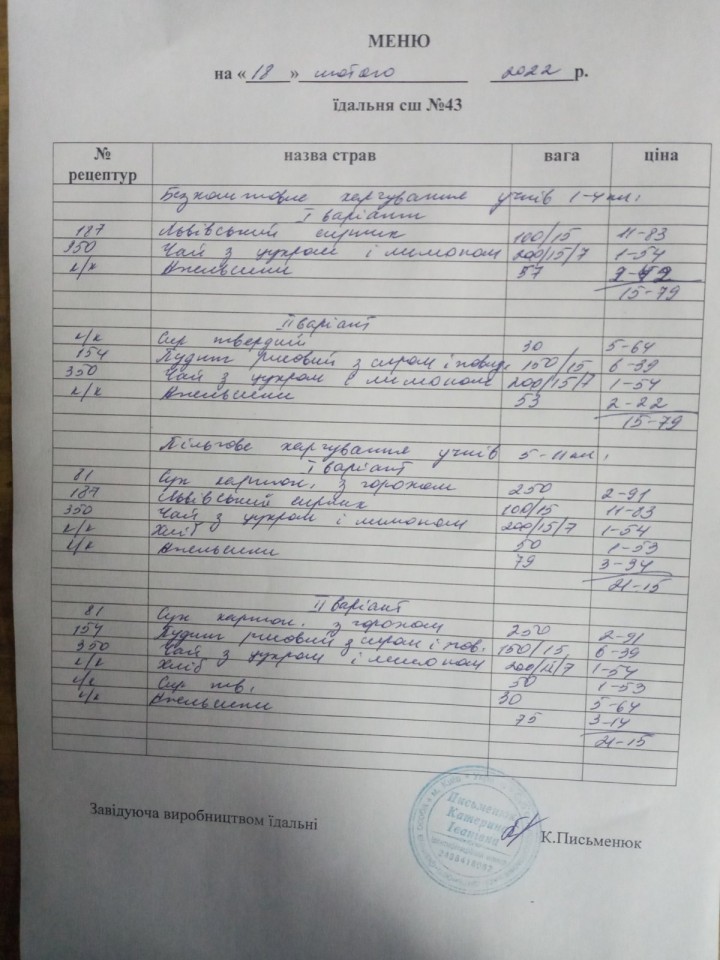 МЕНЮ
на «18» лютого 2022 р.
їдальня сш №43
№ рецептур назва страв вага ціна
Безкоштовне харчування учнів 1-4 кл:
I варіант
187 Львівський сирник 100/15 11-83
350 Чай з цукром і лимоном 200/15/7 1-54
к/к Апельсини 57
15-79
II варіант
к/к Сир твердий 30 5-64
154 Пудинг рисовий з сиром і повид. 150/15 6-39
350 Чай з цукром і лимоном 200/15/7 1-54
к/к Апельсини 53 2-22
15-79
Пільгове харчування учнів 5-11 кл:
I варіант
81 Суп картоп. з горохом 250 2-91
187 Львівський сирник 100/15 11-83
350 Чай з цукром і лимоном 200/15/7 1-54
к/к Хліб 50 1-53
к/к Апельсини 79 3-34
21-15
II варіант
81 Суп картоп. з горохом 250 2-91
154 Пудинг рисовий з сиром і пов. 150/15 6-39
350 Чай з цукром і лимоном 200/15/7 1-54
к/к Хліб 50 1-53
к/к Сир тв. 30 5-64
к/к Апельсини 75 3-14
21-15
Завідуюча виробництвом їдальні К.Письменюк
Письменюк
Катерина
Іванівна